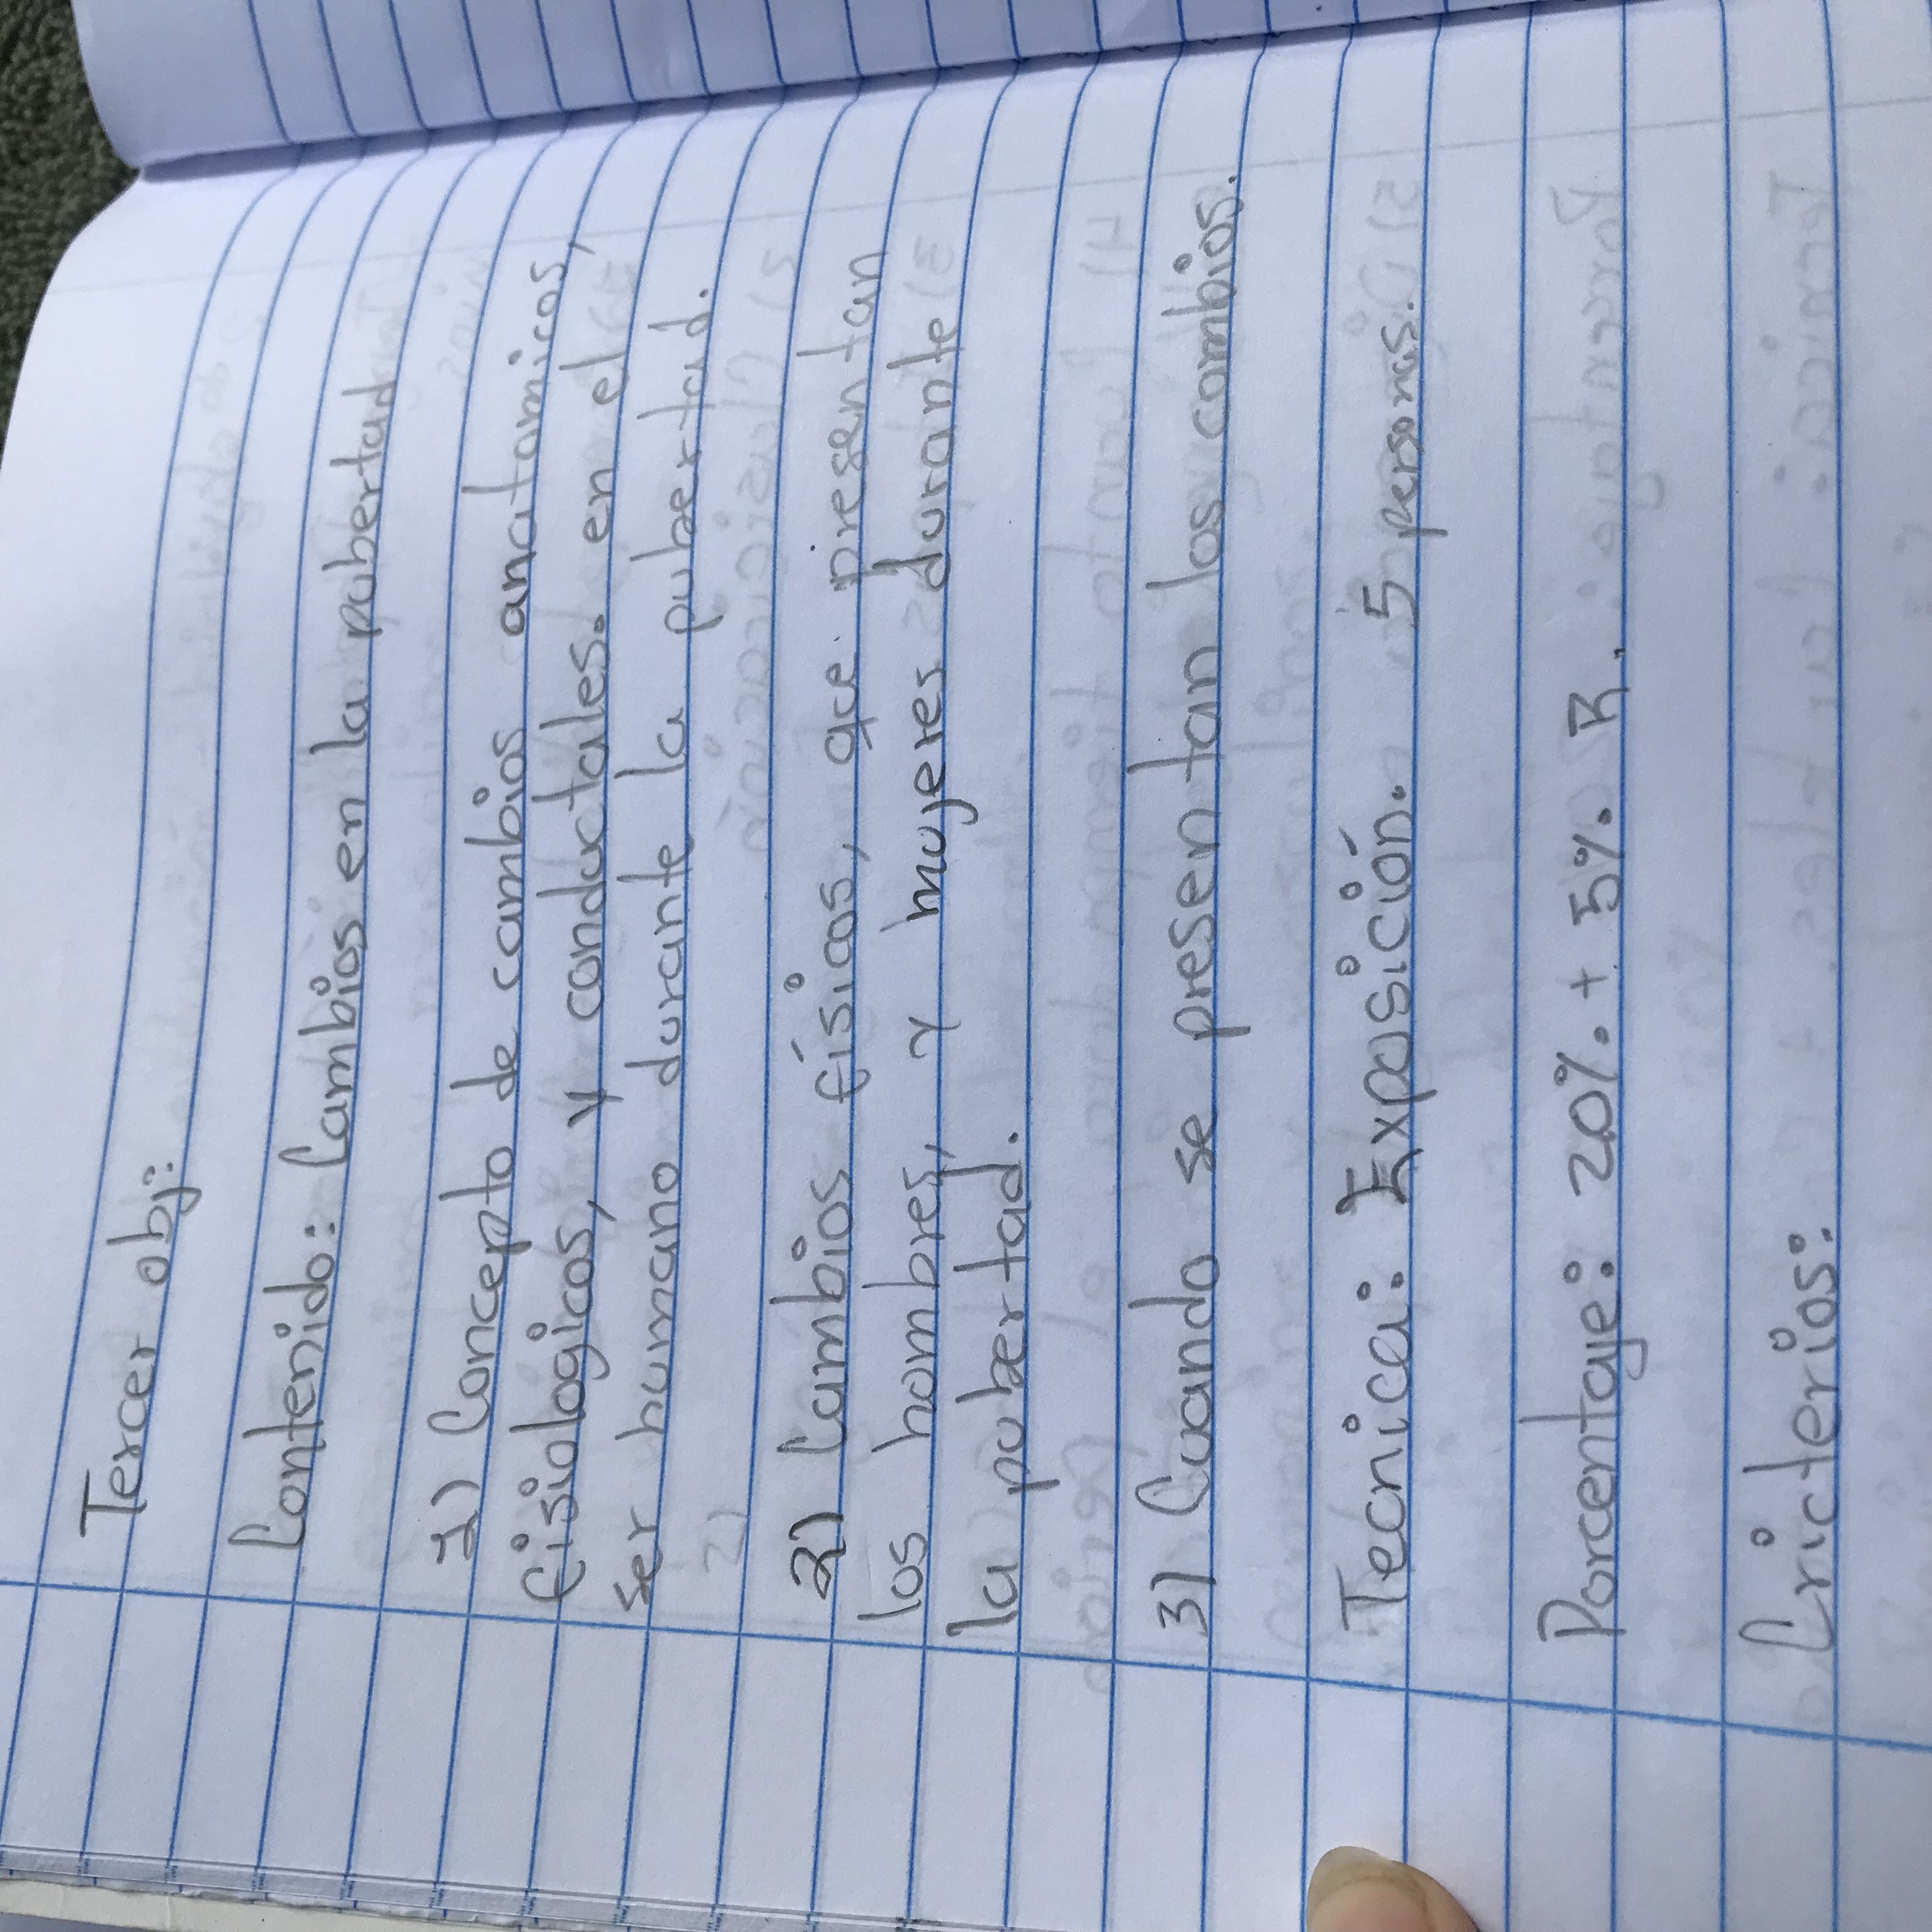 Tercer obj:
Contenido: Cambios en la pubertad
1) Concepto de cambios anatomicos,
fisiologicos, y conductales. en el
ser humano durante la pubertad.
2) Cambios físicos, que presentan
los hombres, y mujeres durante
la pubertad.
3) Cuando se presentan los cambios.
Tecnica: Exposición. 5 personas.
Porcentaje: 20%. + 5%. R.
Cricterios: